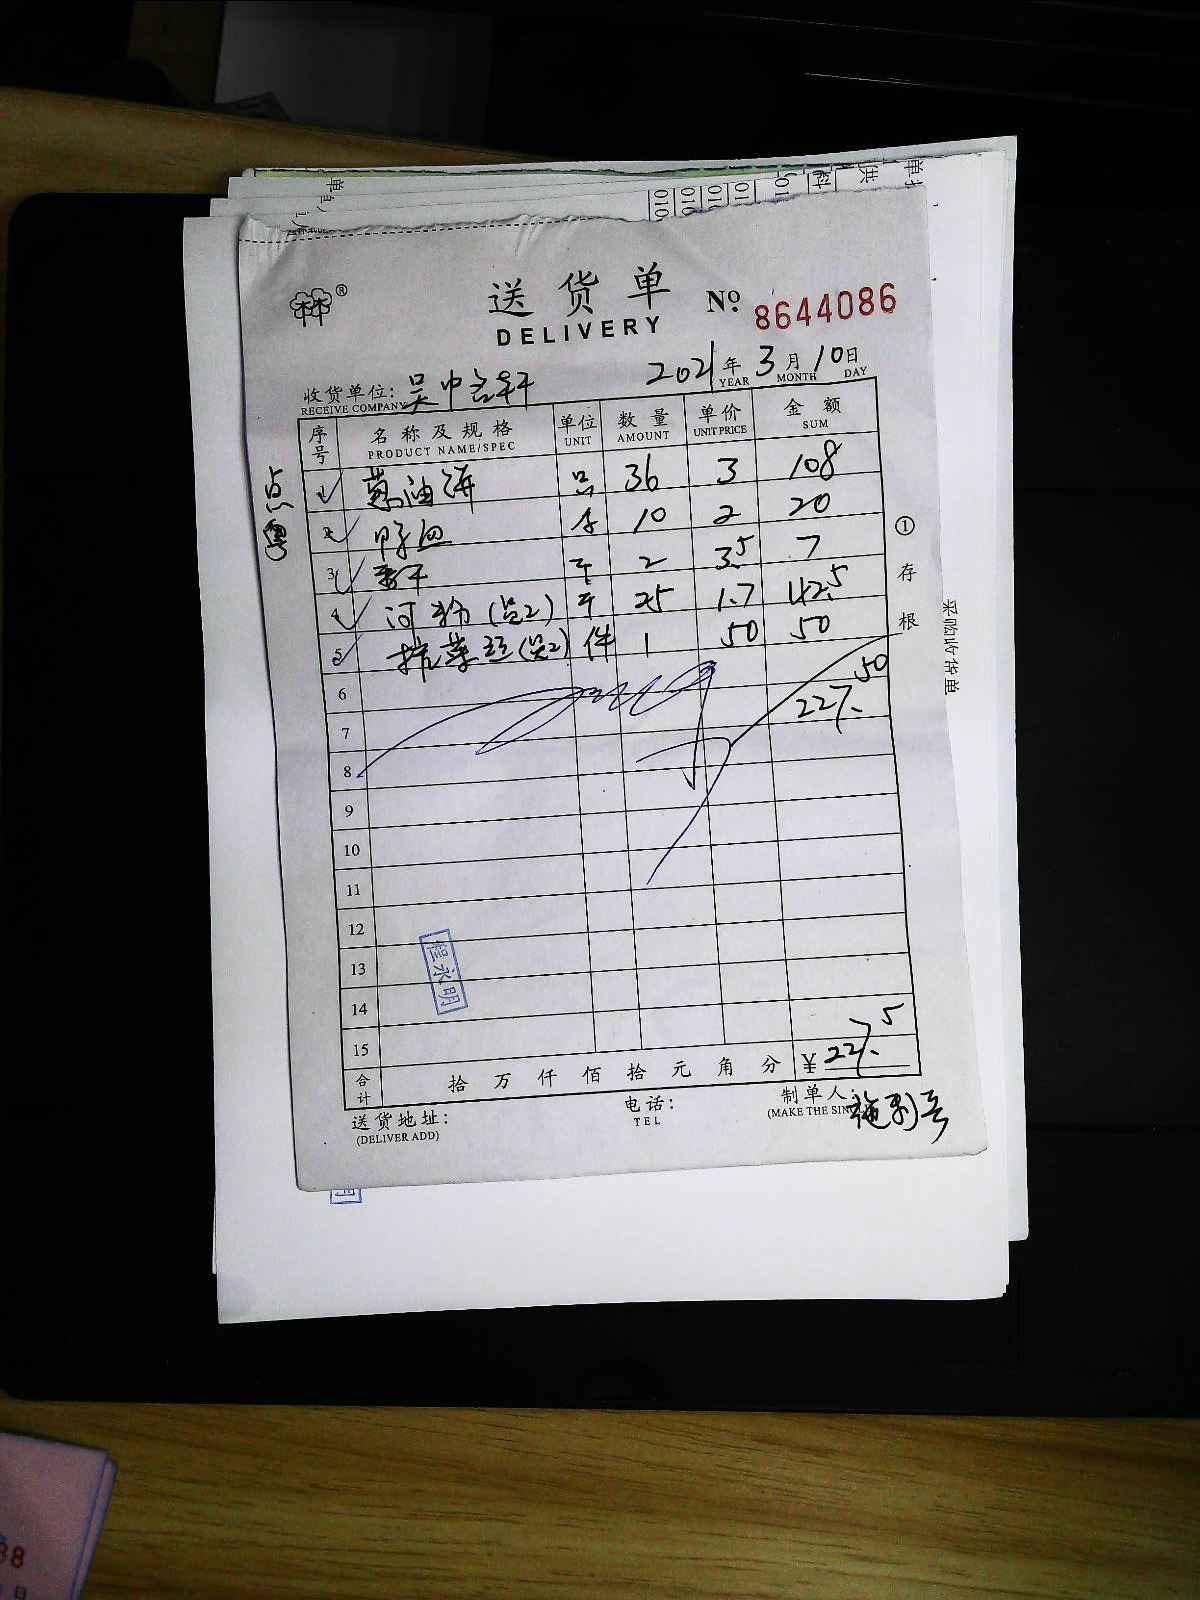 送货单 No. 8644086
DELIVERY
收货单位: 吴中 2021年3月10日
RECEIVE COMPANY YEAR MONTH DAY
序号 名称及规格 单位 数量 单价 金额
PRODUCT NAME/SPEC UNIT AMOUNT UNIT PRICE SUM
点
粤
1 葱油饼 只 36 3 108
2 鸭血 10 2 20
3 干 2 3.5 7
4 河粉(吴2) 斤 25 1.7 42.5
5 榨菜丝(吴2) 件 1 50 50
①存根
采购收货单
6
7 227.50
8
9
10
11
12
13
14
15
程永明
合计 拾万仟佰拾元角分 ¥227.5
送货地址: 电话: 制单人:
(DELIVER ADD) TEL (MAKE THE SIN